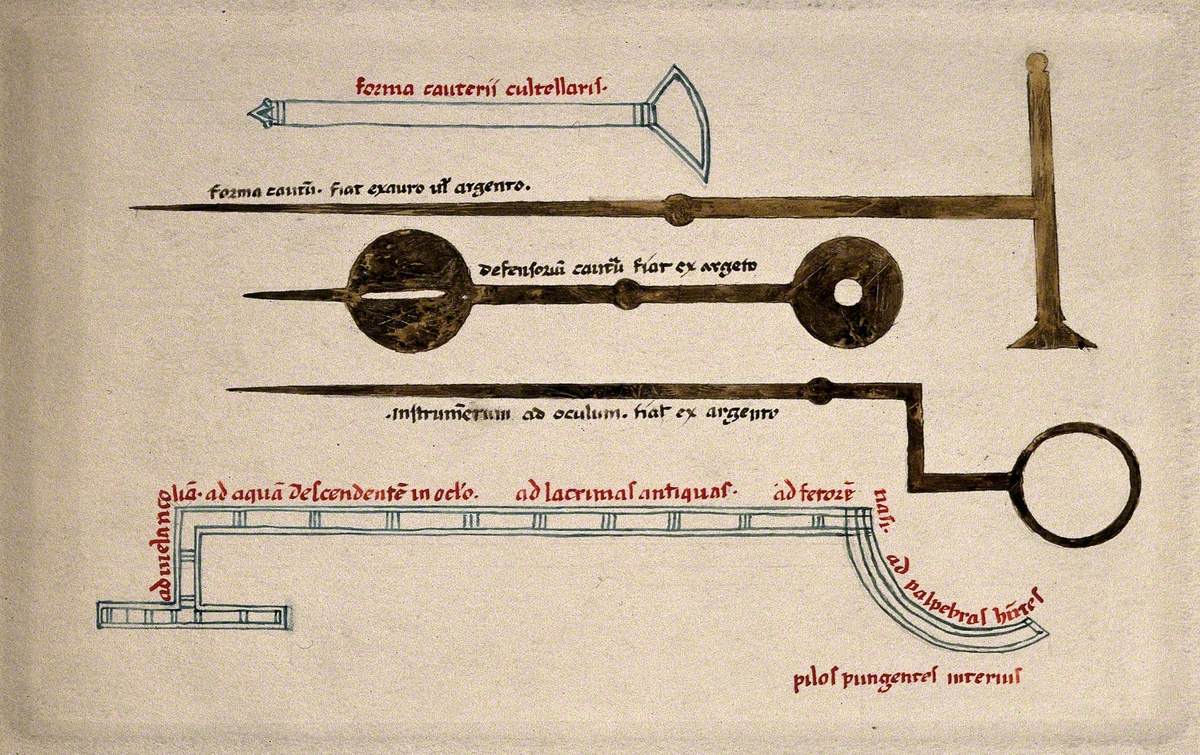 forma cauterii cultellaris.
forma cautũ. fiat ex auro ul̃ argento.
defensoriũ cautũ fiat ex argeto
.instrum̃entum ad oculum. fiat ex argento
ad melancoliã. ad aquã descendentẽ in oclo. ad lacrimas antiquas. ad fetorẽ nasi. ad palpebras hñtes
pilos pungentes interius